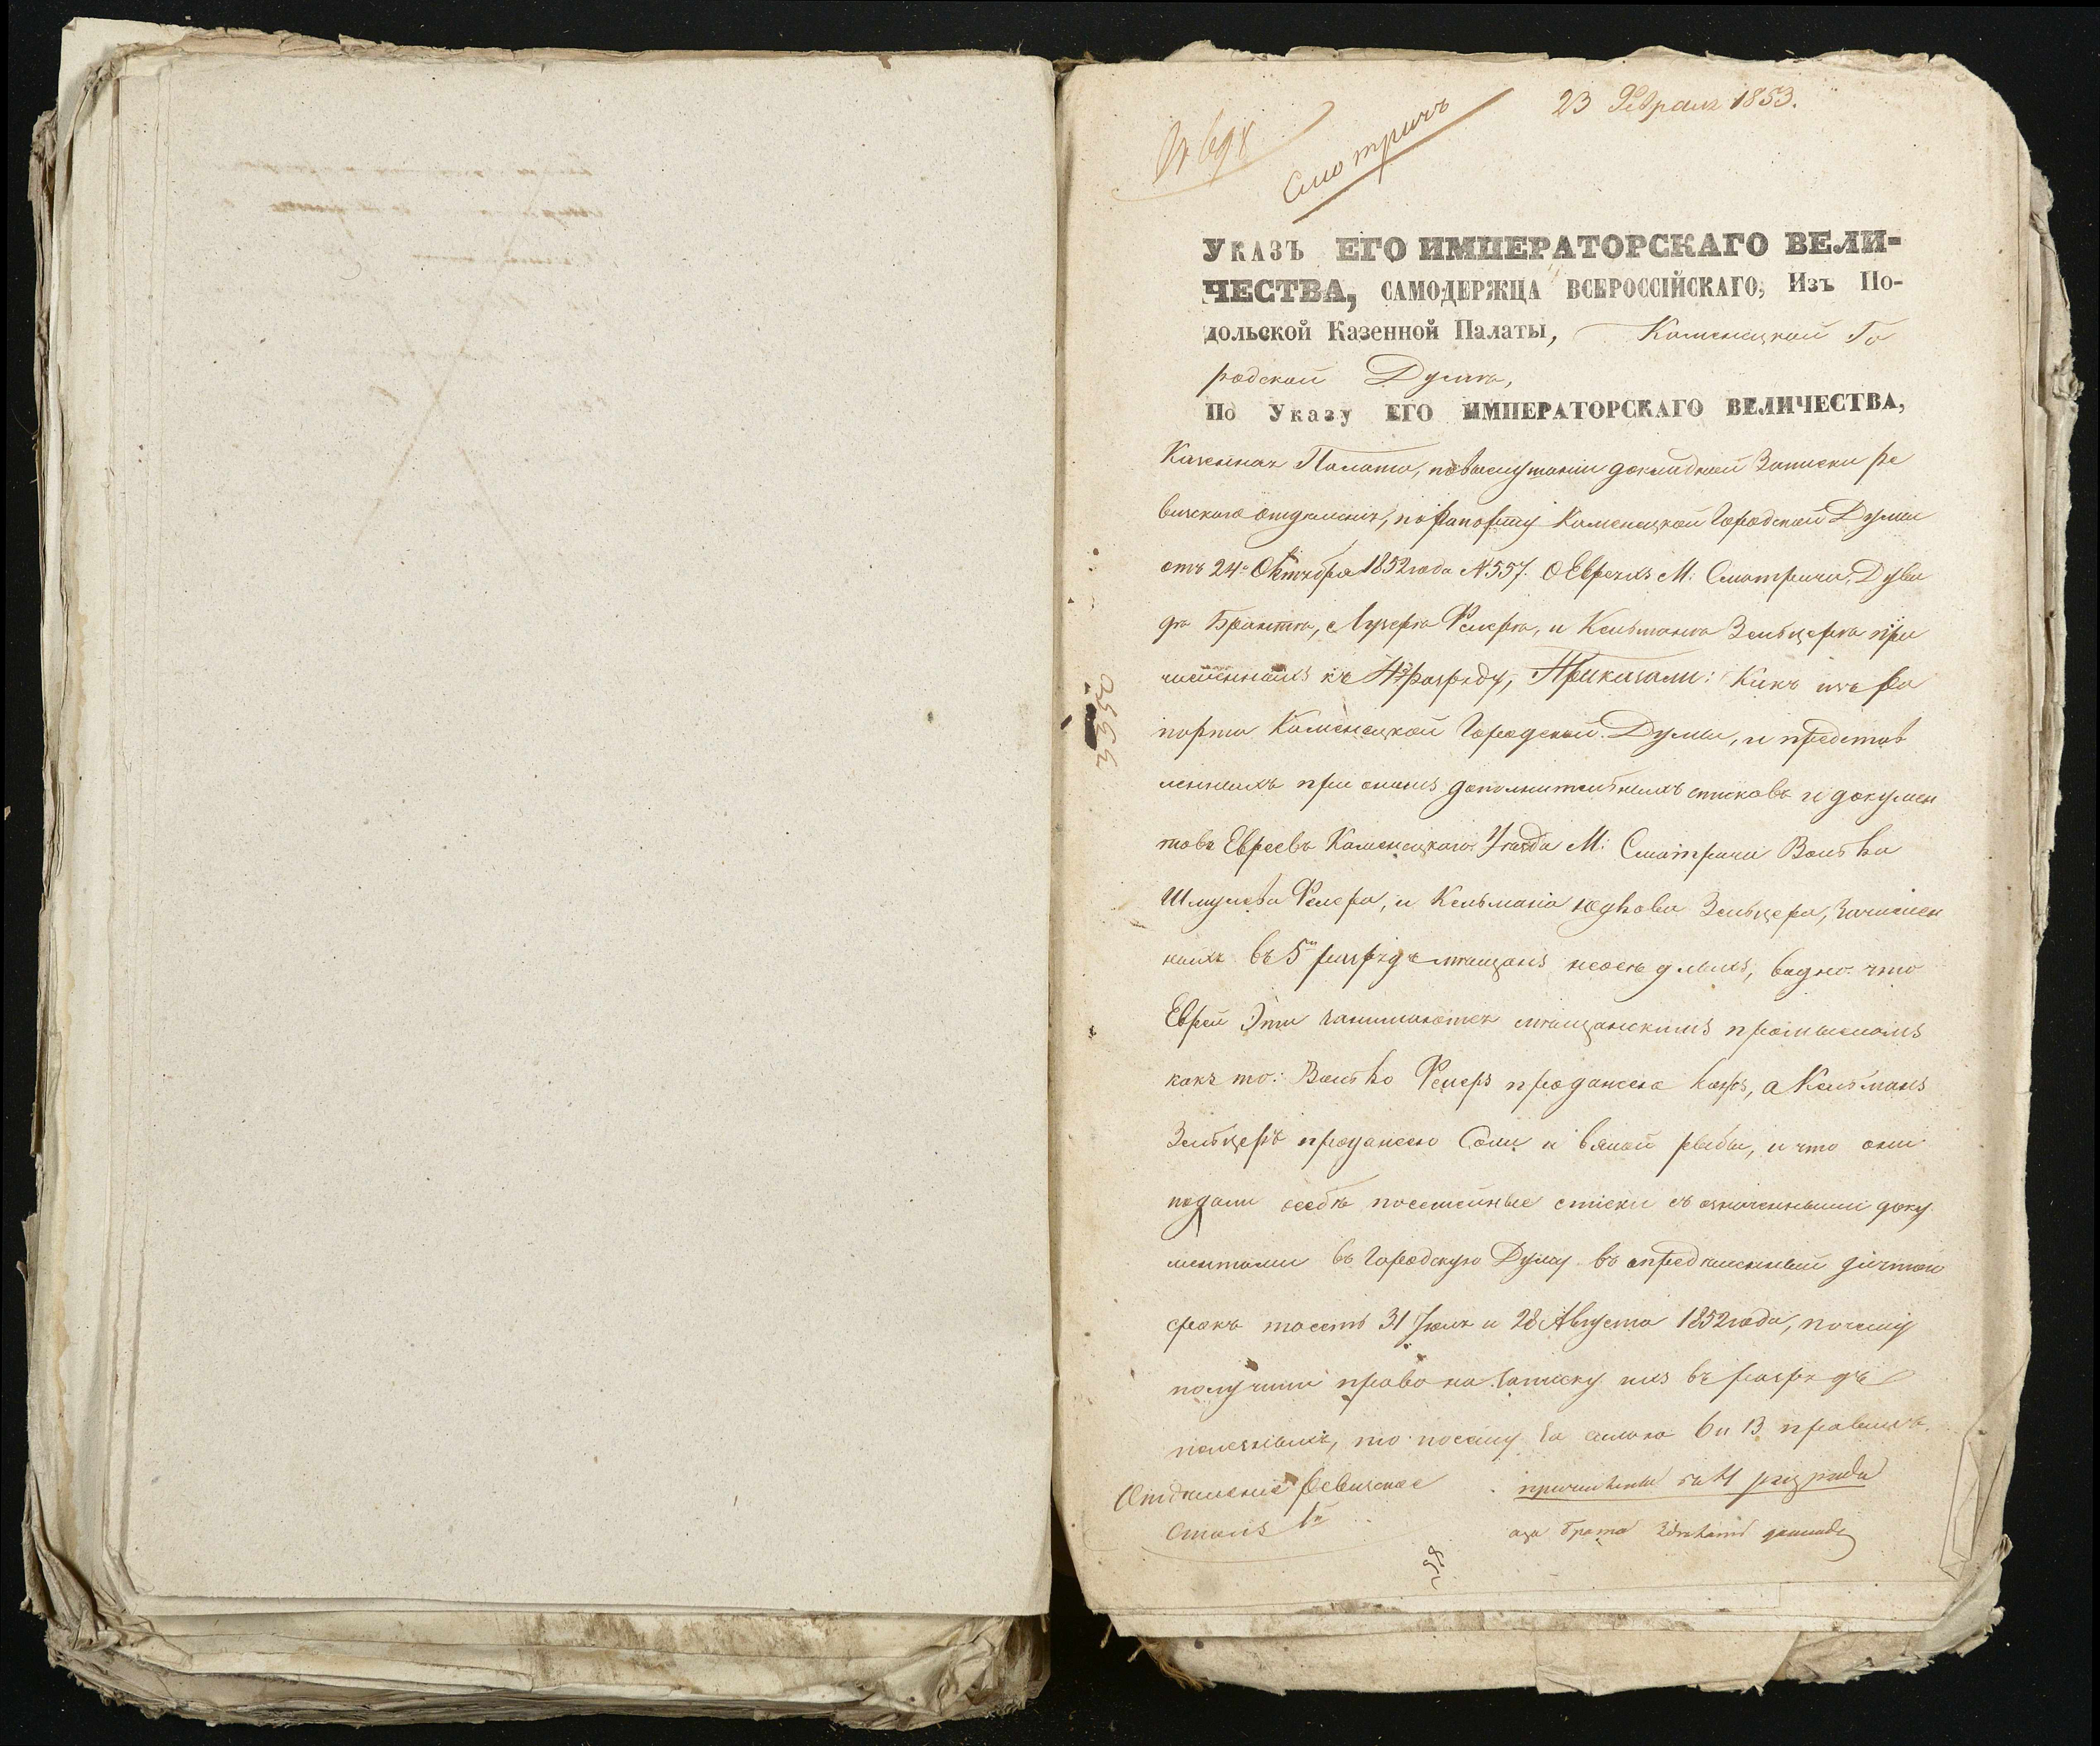 23 Февраля 1853.
№ 698
Смотричъ
Указъ ЕГО ИМПЕРАТОРСКАГО ВЕЛИ-
ЧЕСТВА, САМОДЕРЖЦА ВСЕРОССІЙСКАГО, Изъ По-
дольской Казенной Палаты, Каменецкой Го
родской Думѣ,
По Указу ЕГО ИМПЕРАТОРСКАГО ВЕЛИЧЕСТВА,
Казенная Палата, по выслушаніи докладной Записки Ре
визскаго отдѣленія, по Рапорту Каменецкой Городской Думы
отъ 24 Октября 1852 года № 557. О Евреяхъ М: Смотрича, Дуви
да Фелера, и Кельмана Зельцера при
численныхъ къ разряду, Приказали: Какъ изъ Ра
порта Каменецкой Городской Думы, и представ
ленныхъ при ономъ дополнительныхъ списковъ и докумен
товъ Евреевъ Каменецкаго Уѣзда М: Смотрича Волька
Шмулева Фелера, и Кельмана Юдкова Зельцера, Зачислен
ныхъ въ 5й разрядъ мѣщанъ неосѣдлыхъ, видно что
Евреи Эти занимаются мѣщанскимъ промысломъ
какъ то: Волько Фелеръ продажею кожъ, а Кельманъ
Зельцеръ продажею Соли и вялой рыбы, и что они
подали о себѣ посемейные списки съ означенными доку
ментами въ Городскую Думу въ опредѣленный
срокъ тоесть 31 Іюля и 28 Августа 1852 года, почему
получили право на записку ихъ въ разрядъ
полезныхъ, то посему на 6 и 13 правилъ
Отдѣленіе Ревизское
Столъ 1й
причислены разряда
брата